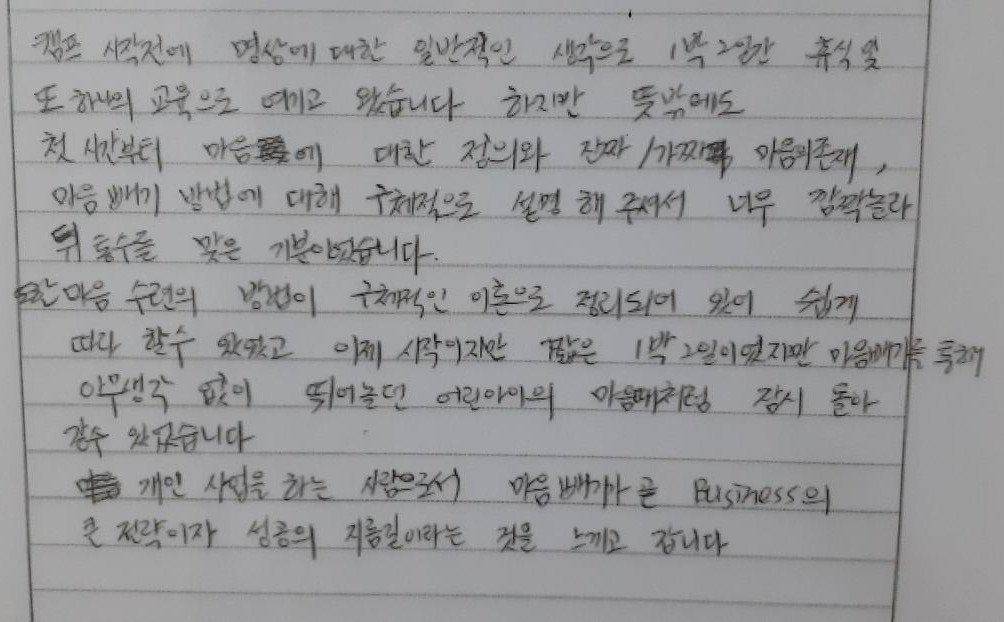 캠프 시작전에 명상에 대한 일반적인 생각으로 1박 2일간 휴식 및
또 하나의 교육으로 여기고 왔습니다 하지만 뜻밖에도
첫 시간부터 마음에 대한 정의와 진짜/가짜 마음의존재,
마음빼기 방법에 대해 구체적으로 설명 해 주셔서 너무 깜짝놀라
뒤통수를 맞은 기분이었습니다.
또한 마음 수련의 방법이 구체적인 이론으로 정리되어 있어 쉽게
따라 할수 있었고 이제 시작이지만 짧은 1박 2일이었지만 마음빼기를 통해
아무생각 없이 뛰어놀던 어린아이의 마음때처럼 잠시 돌아
갈수 있었습니다
개인 사업을 하는 사람으로서 마음빼기가 곧 Business의
큰 전략이자 성공의 지름길이라는 것을 느끼고 갑니다